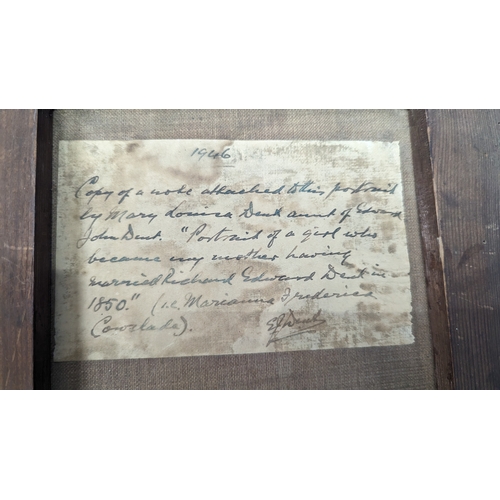 1946
Copy of a note attached to this portrait
by Mary Louisa Dent aunt of Edward
John Dent. "Portrait of a girl who
became my mother having
married Richard Edward Dent in
1850." (i.e. Marianna Frederica
Cowslade).
EJDent